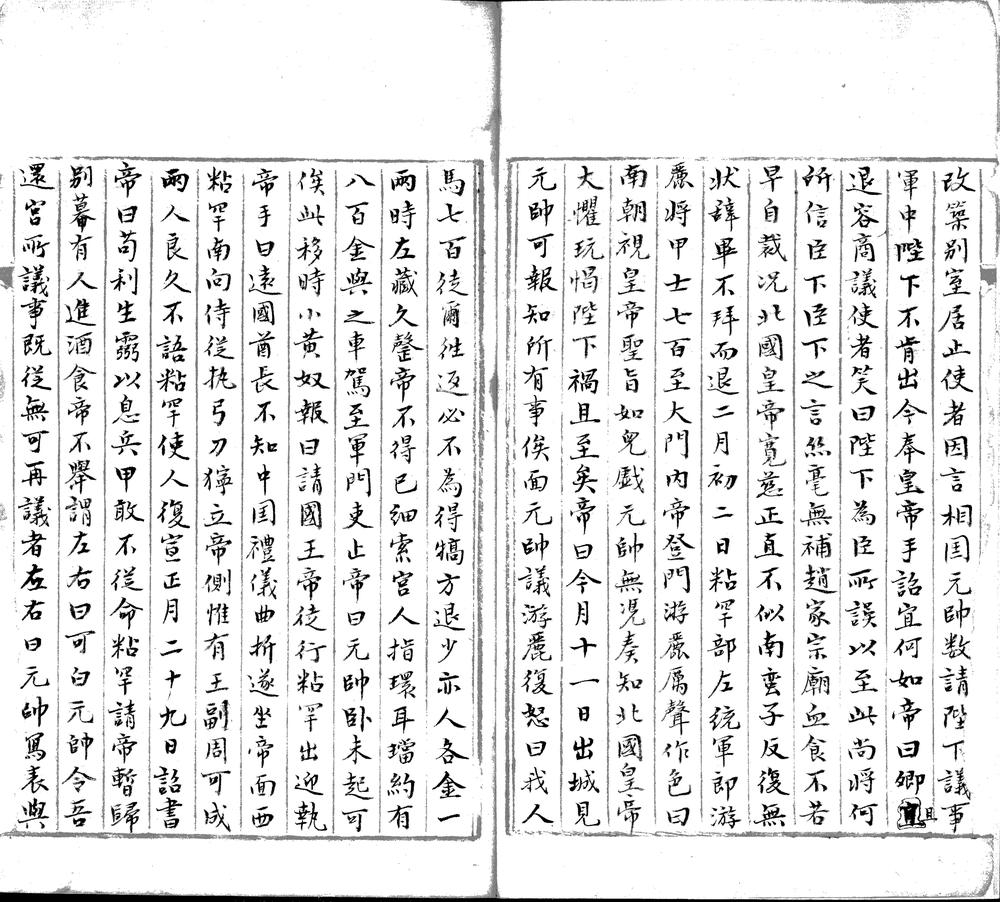 改築别室居止使者因言相囯元帥数請陛下議事
軍中陛下不肯出今奉皇帝手詔宜何如帝曰卿且
退容商議使者笑曰陛下為臣所誤以至此尚將何
所信臣下臣下之言絲毫無補趙家宗廟血食不若
早自裁况北國皇帝寛慈正直不似南蛮子反復無
状辞畢不拜而退二月初二日粘罕部左统軍郎游
麗將甲士七百至大門内帝登門游麗厲聲作色曰
南朝視皇帝聖旨如兒戯元帥無况奏知北國皇帝
大懼玩愒陛下禍且至矣帝曰今月十一日出城見
元帥可報知所有事俟面元帥議游麗復怒曰我人
馬七百徒爾徃返必不為得犒方退少亦人各金一
兩時左藏久罄帝不得已细索宫人指環耳璫約有
八百金與之車駕至軍門吏止帝曰元帥卧未起可
俟此移時小黄奴報曰請國王帝徒行粘罕出迎執
帝手曰遠國酋長不知中囯禮儀曲折遂坐帝面西
粘罕南向侍從执弓刀獰立帝側惟有王副周可成
兩人良久不語粘罕使人復宣正月二十九日詔書
帝曰苟利生靈以息兵甲敢不從命粘罕請帝暫歸
别幕有人進酒食帝不舉謂左右曰可白元帥令吾
還宫所議事既從無可再議者左右曰元帥寫表與